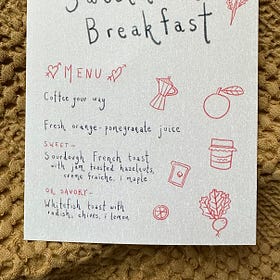 Breakfast
MENU
Coffee your way
Fresh orange-pomegranate juice
SWEET-
Sourdough French toast
with jam, toasted hazelnuts,
crème fraîche, & maple
OR SAVORY-
Whitefish toast with
radish, chives, & lemon